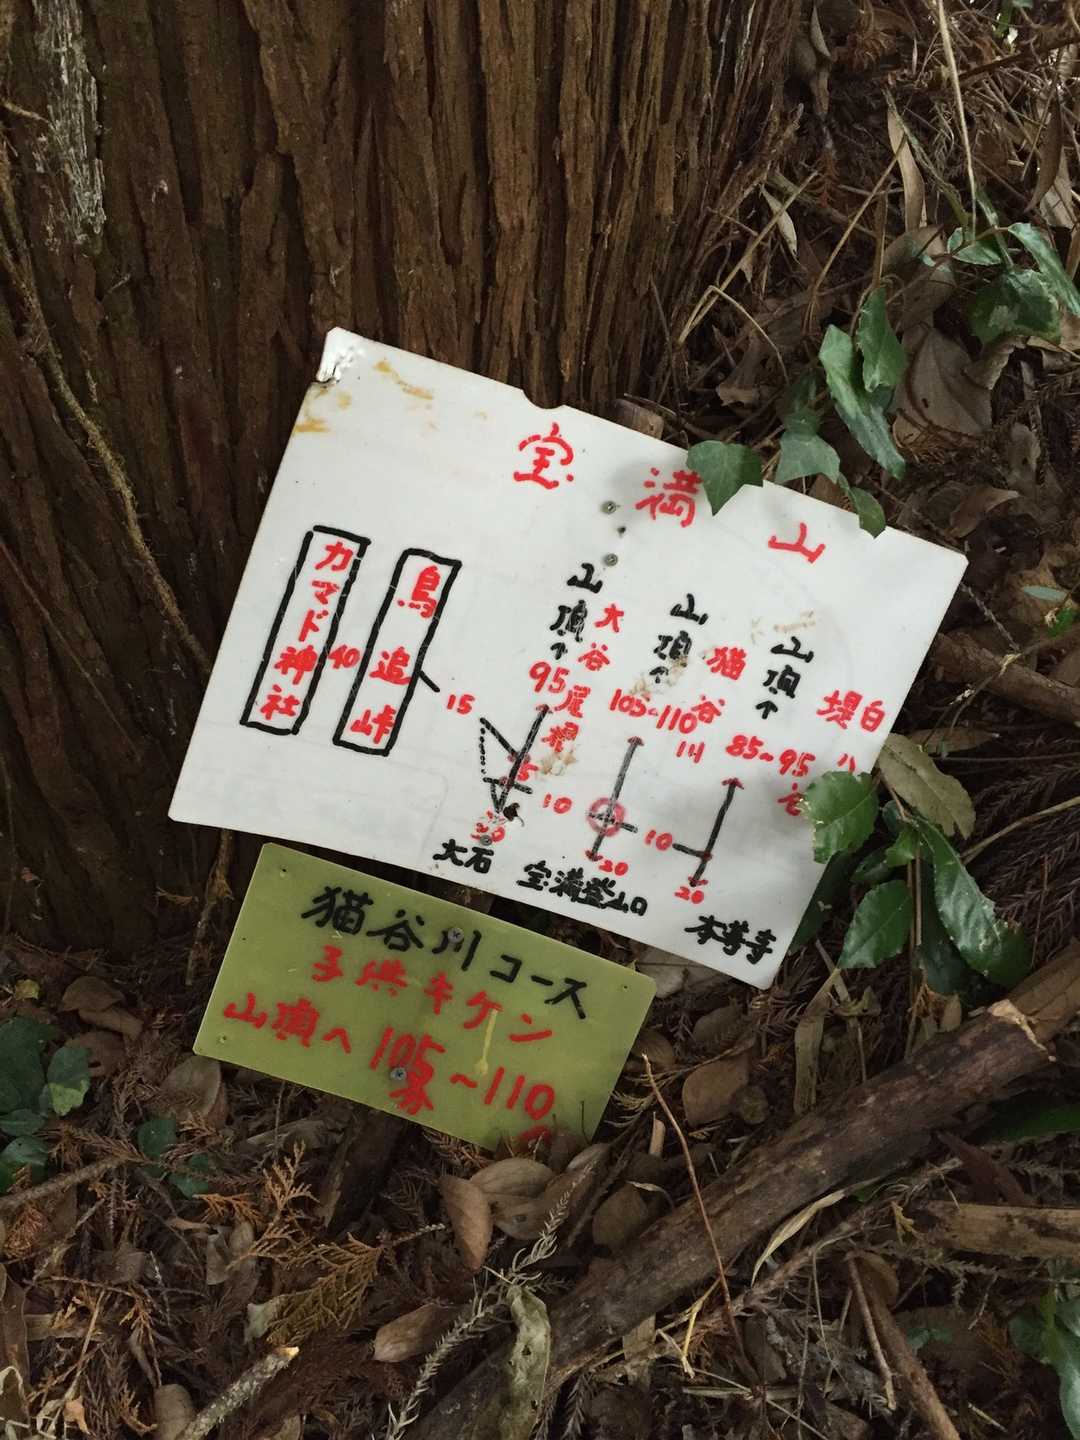 宝満山
カマド神社
40
鳥追峠
15
山頂
↑
95
大谷尾根
山頂
↑
105~110
猫谷川
山頂
↑
85~95
堤白
15
10
10
20
20
大石
宝満登山口
本尊寺
猫谷川コース
子供キケン
山頂へ105~110
分